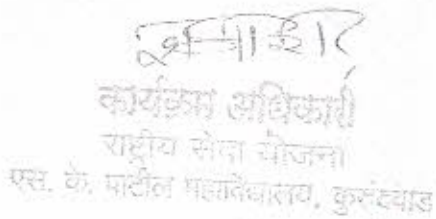 कार्यक्रम अधिकारी
राष्ट्रीय सेवा योजना
एस. के. पाटील महाविद्यालय, कुरुंदवाड